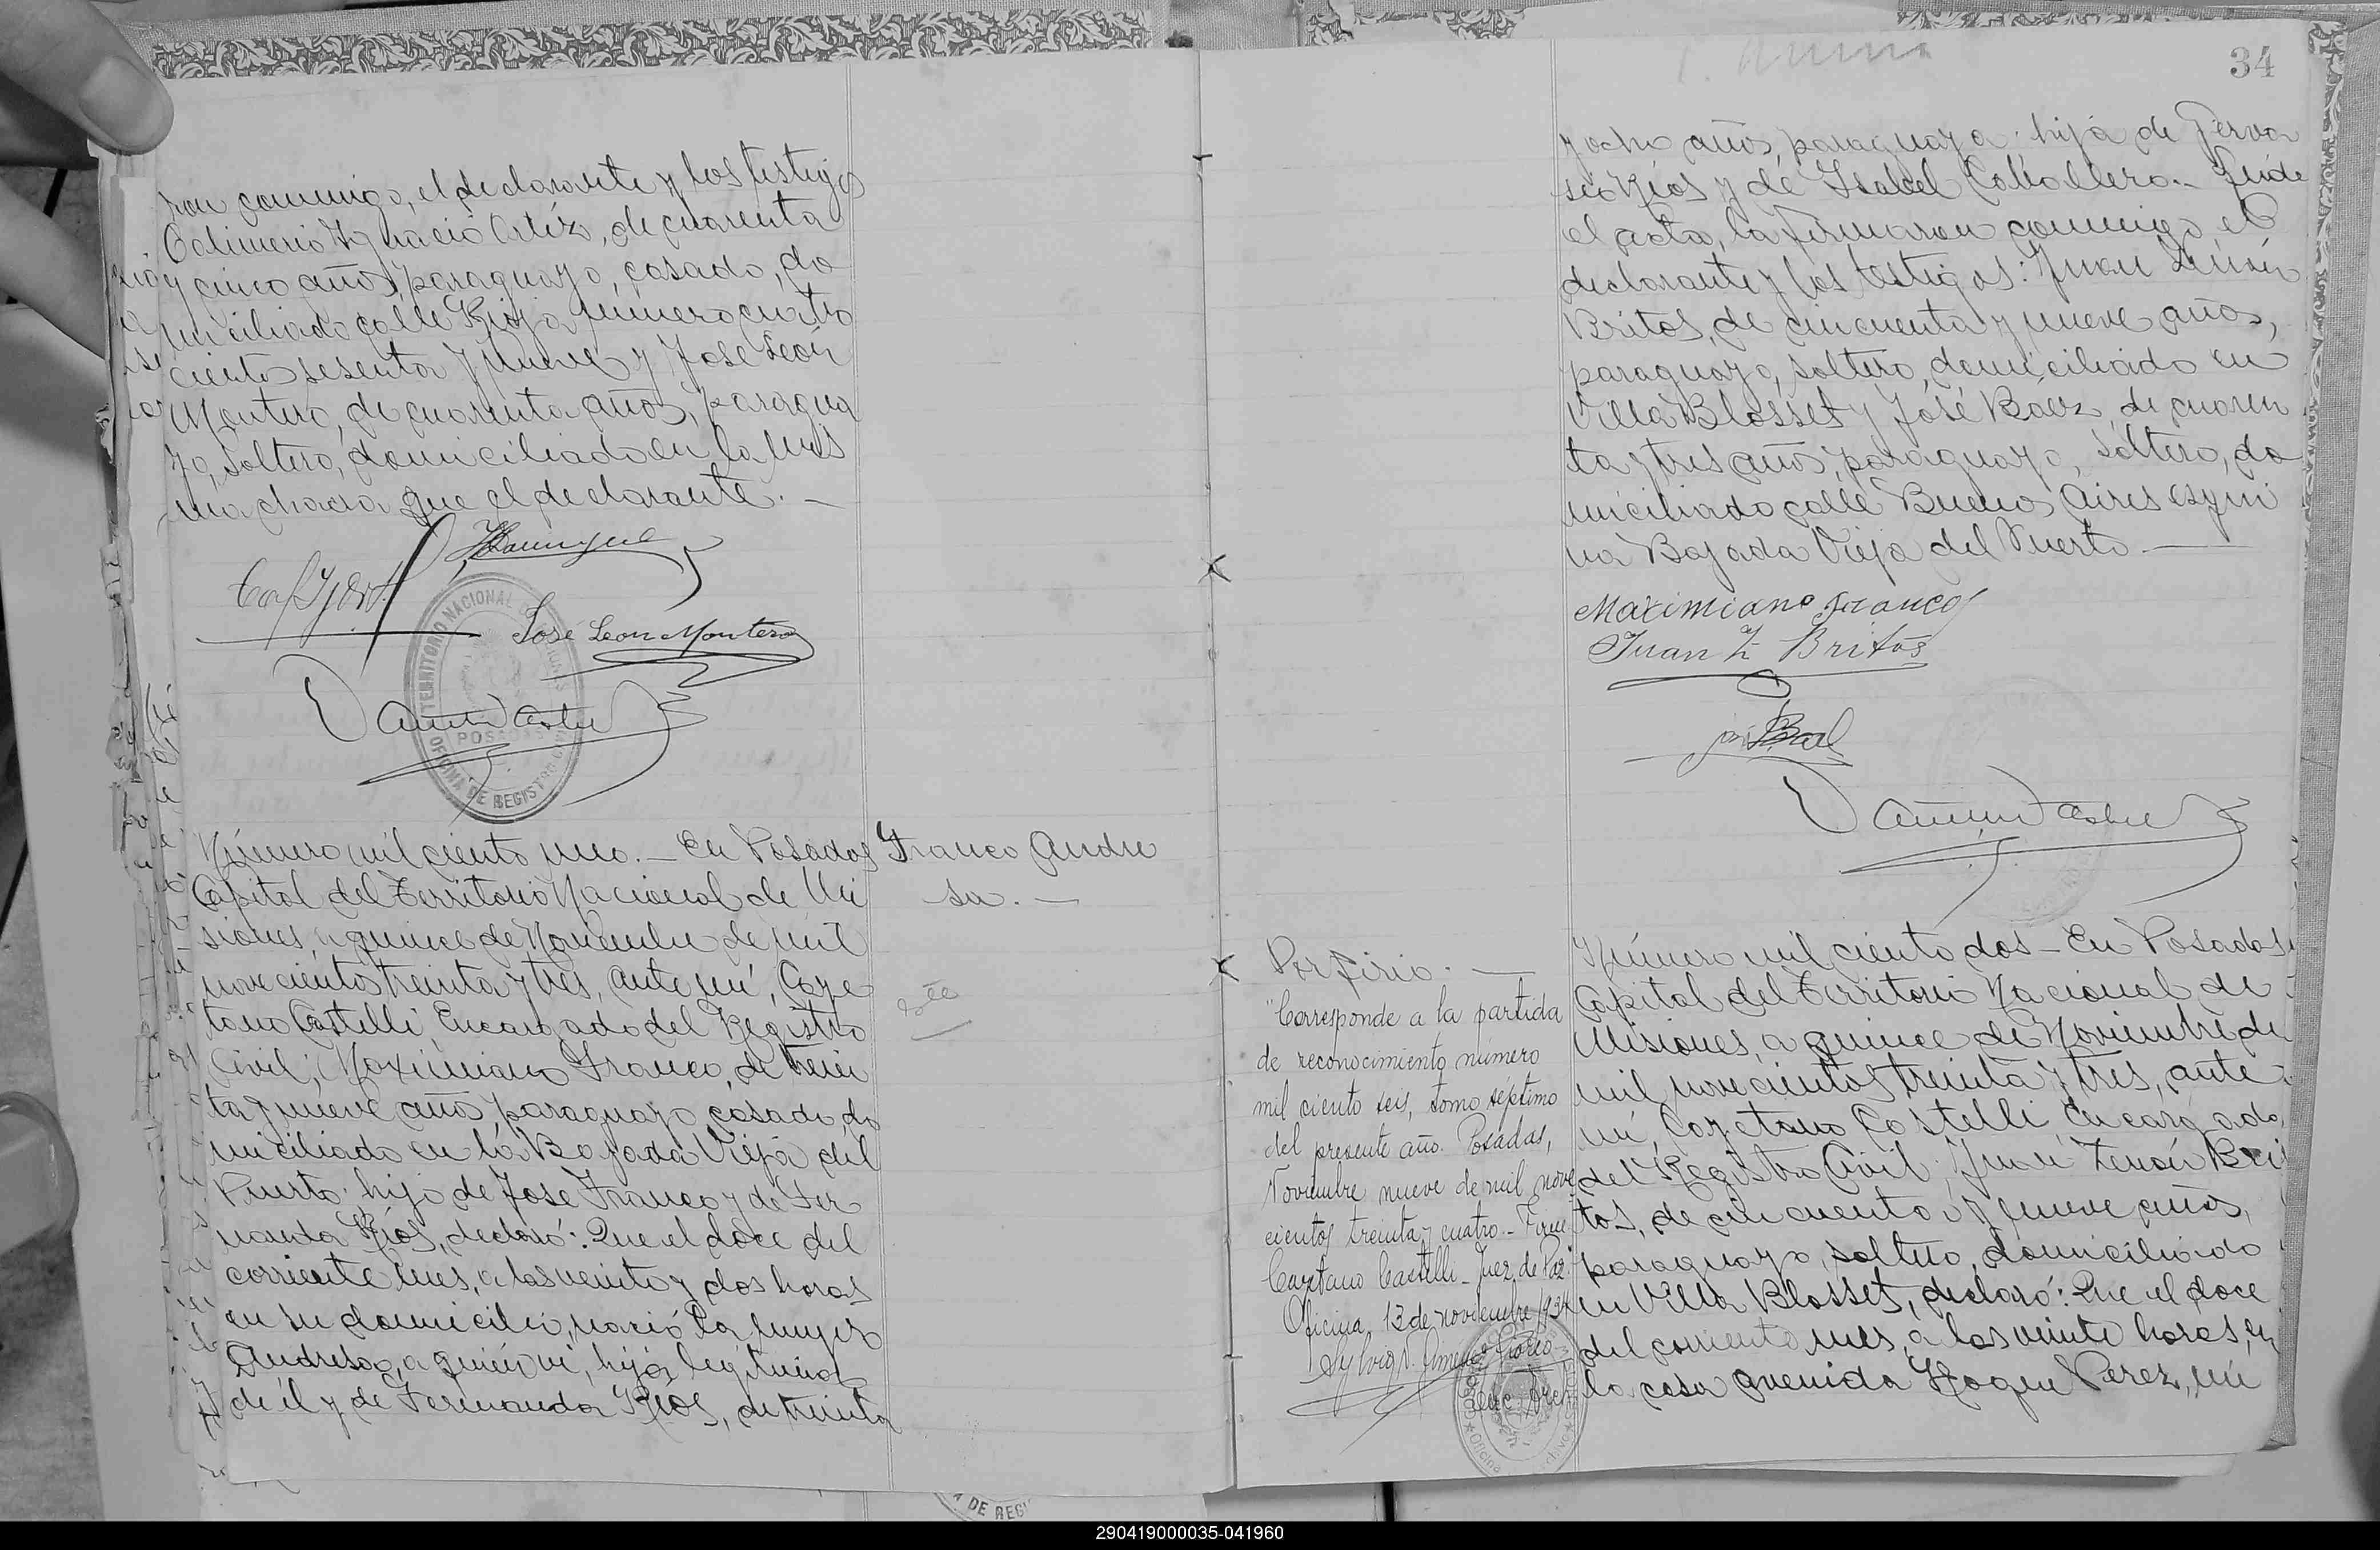 ron conmigo, el declarante y los testigos
Ignacio Ortíz, de cuarenta
y cinco años, paraguayo, casado, do
miciliado calle Rioja número cuatro
ciento sesenta y nueve y José León
Montero, de cuarenta años, paragua
yo, soltero, domiciliado en la mis
ma chacra que el declarante.—
José Leon Montero
TERRITORIO NACIONAL DE MISIONES
POSADAS
OFICINA DE REGISTRO CIVIL
Número mil ciento uno.— En Posadas
Capital del Territorio Nacional de Mi
siones, a quince de Noviembre de mil
novecientos treinta y tres, ante mí, Caye
tano Castelli, Encargado del Registro
Civil; Maximiano Franco, de trein
ta y nueve años, paraguayo, casado, do
miciliado en la Bajada Vieja del
Puerto, hijo de José Franco y de Fer
nanda Ríos, declaró: Que el doce del
corriente mes, a las veinte y dos horas
en su domicilio, nació la mujer
Andresa, a quien vi, hija legítima
de él y de Fernanda Ríos, de treinta
Franco Andre
sa.—
34
y ocho años, paraguaya, hija de Gerva
sio Ríos y de Isabel Caballero.— Leída
el acta, la firmaron conmigo, el
declarante y los testigos: Juan Zenón
Britos, de cincuenta y nueve años,
paraguayo, soltero, domiciliado en
Villa Blosset y José Báez, de cuaren
ta y tres años, paraguayo, soltero, do
miciliado calle Buenos Aires esqui
na Bajada Vieja del Puerto.—
Maximiano Franco
Juan Z Britos
Porfirio.—
"Corresponde a la partida
de reconocimiento número
mil ciento seis, tomo séptimo
del presente año. Posadas,
Noviembre nueve de mil nove
cientos treinta y cuatro.—
Cayetano Castelli - Juez de Paz
Oficina, 13 de noviembre 1934
Número mil ciento dos — En Posadas
Capital del Territorio Nacional de
Misiones, a quince de Noviembre de
mil novecientos treinta y tres, ante
mí, Cayetano Castelli Encargado
del Registro Civil; Juan Zenón Bri
tos, de cincuenta y nueve años,
paraguayo, soltero, domiciliado
en Villa Blosset, declaró: Que el doce
del corriente mes, a las veinte horas, en
la casa avenida Roque Perez, nú
A DE REGI
290419000035-041960